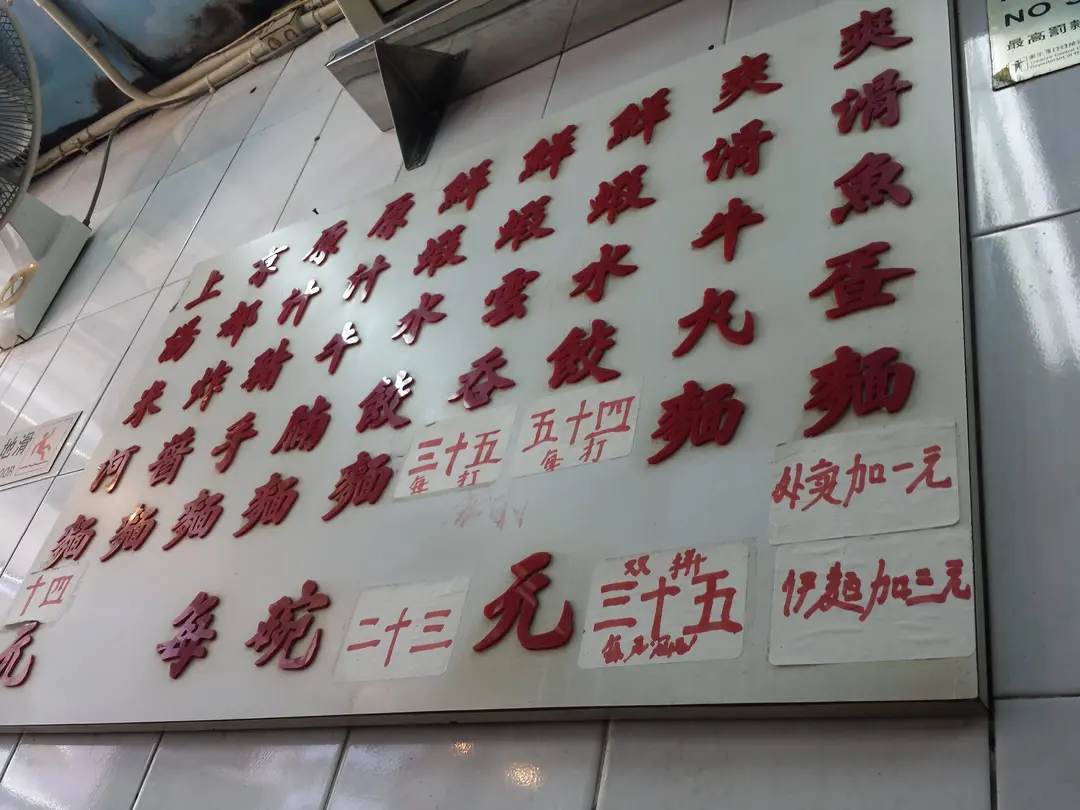 爽滑魚蛋麵
爽滑牛丸麵
鮮蝦水餃
五十四
每打
鮮蝦雲吞
三十五
每打
鮮蝦水餃麵
原汁牛腩麵
原汁豬手麵
京都炸醬麵
上湯米河麵
十四
元
每碗二十三元
双拼
三十五
外賣加一元
伊麵加三元
NO
最高罰款
地滑